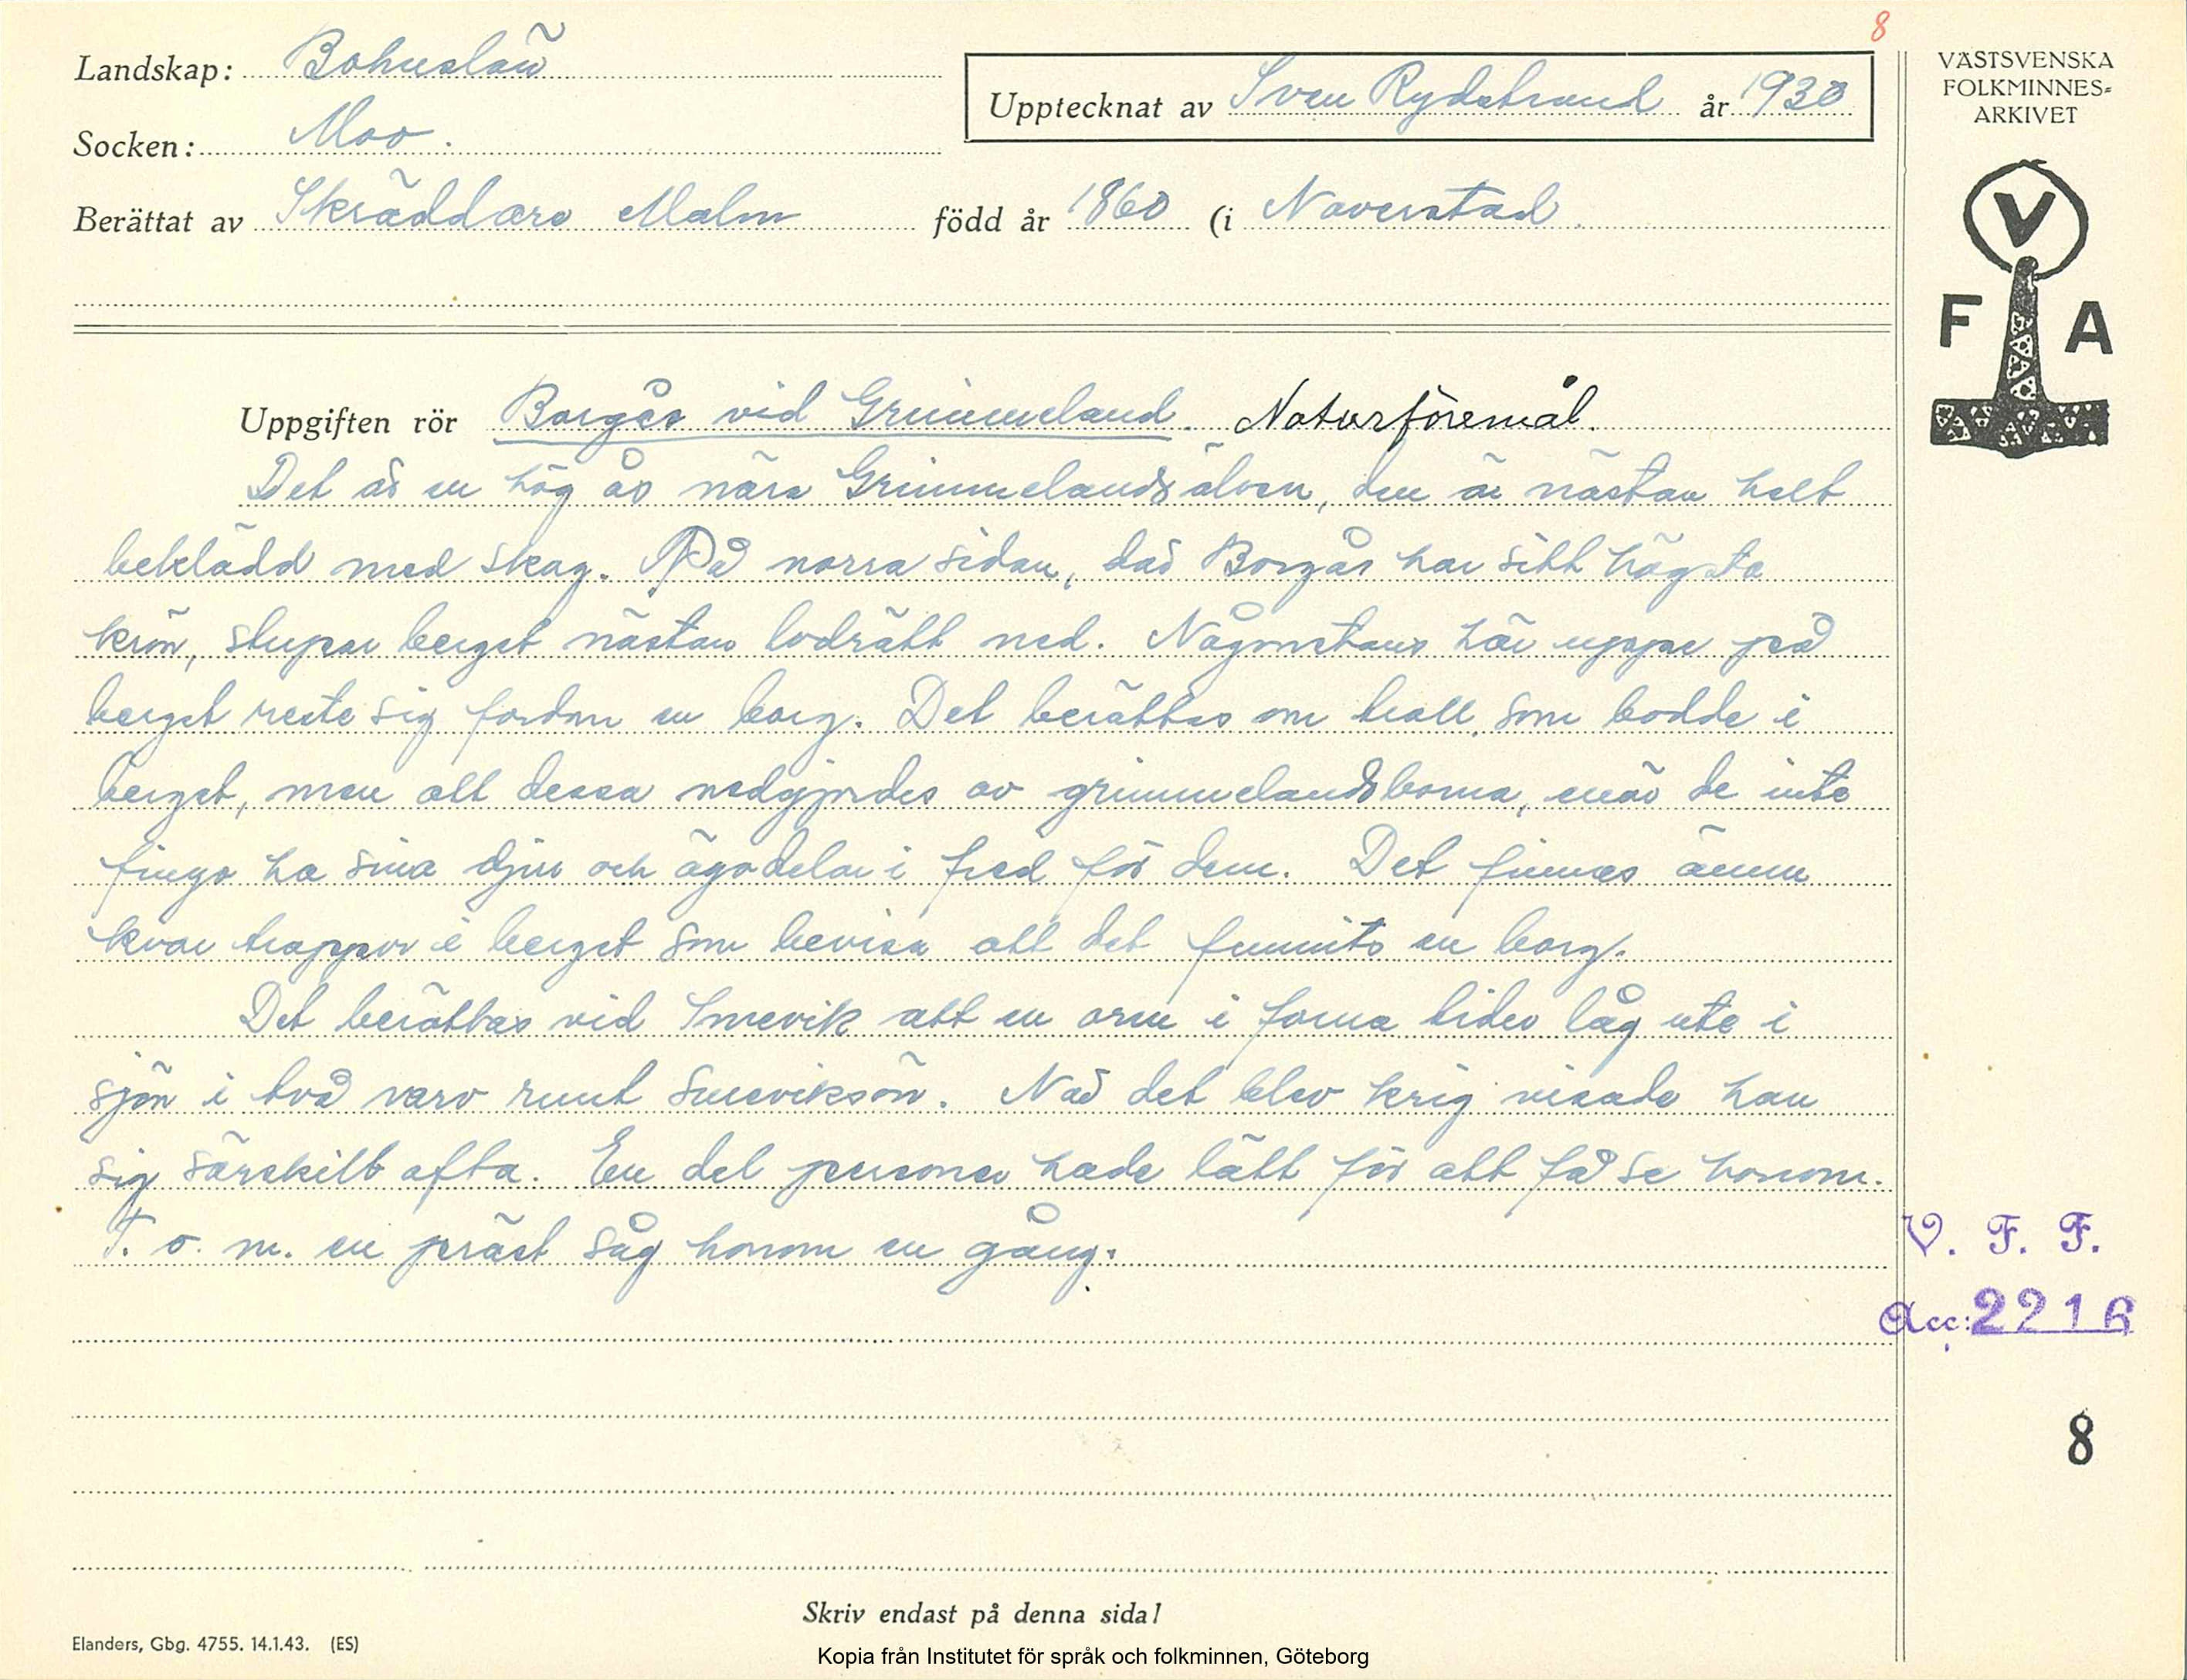 8
Landskap: Bohuslän
Upptecknat av Sven Rydstrand år 1930
VÄSTSVENSKA
FOLKMINNES=
ARKIVET
Socken: Moo.
Berättat av Skräddare Malm född år 1860 (i Naverstad.
V
F A
Uppgiften rör Borgås vid Grimmeland. Naturföremål.
Det är en hög ås nära Grimmelandsälven, den är nästan helt
beklädd med skog. På norra sidan, där Borgås har sitt högsta
krön, stupar berget nästan lodrätt ned. Någonstans här uppe på
berget reste sig fordom en borg. Det berättas om troll, som bodde i
berget, men att dessa nedgjordes av grimmelandsborna, enär de inte
fingo ha sina djur och ägodelar i fred för dem. Det finnes ännu
kvar trappor i berget som bevisa att det funnits en borg.
Det berättas vid Smevik att en orm i forna tider låg ute i
sjön i två varv runt Smeviksön. När det blev krig visade han
sig särskilt ofta. En del personer hade lätt för att få se honom.
T. o. m. en präst såg honom en gång.
V. F. F.
Acc: 2216
8
Skriv endast på denna sida!
Elanders, Gbg. 4755. 14.1.43. (ES)
Kopia från Institutet för språk och folkminnen, Göteborg